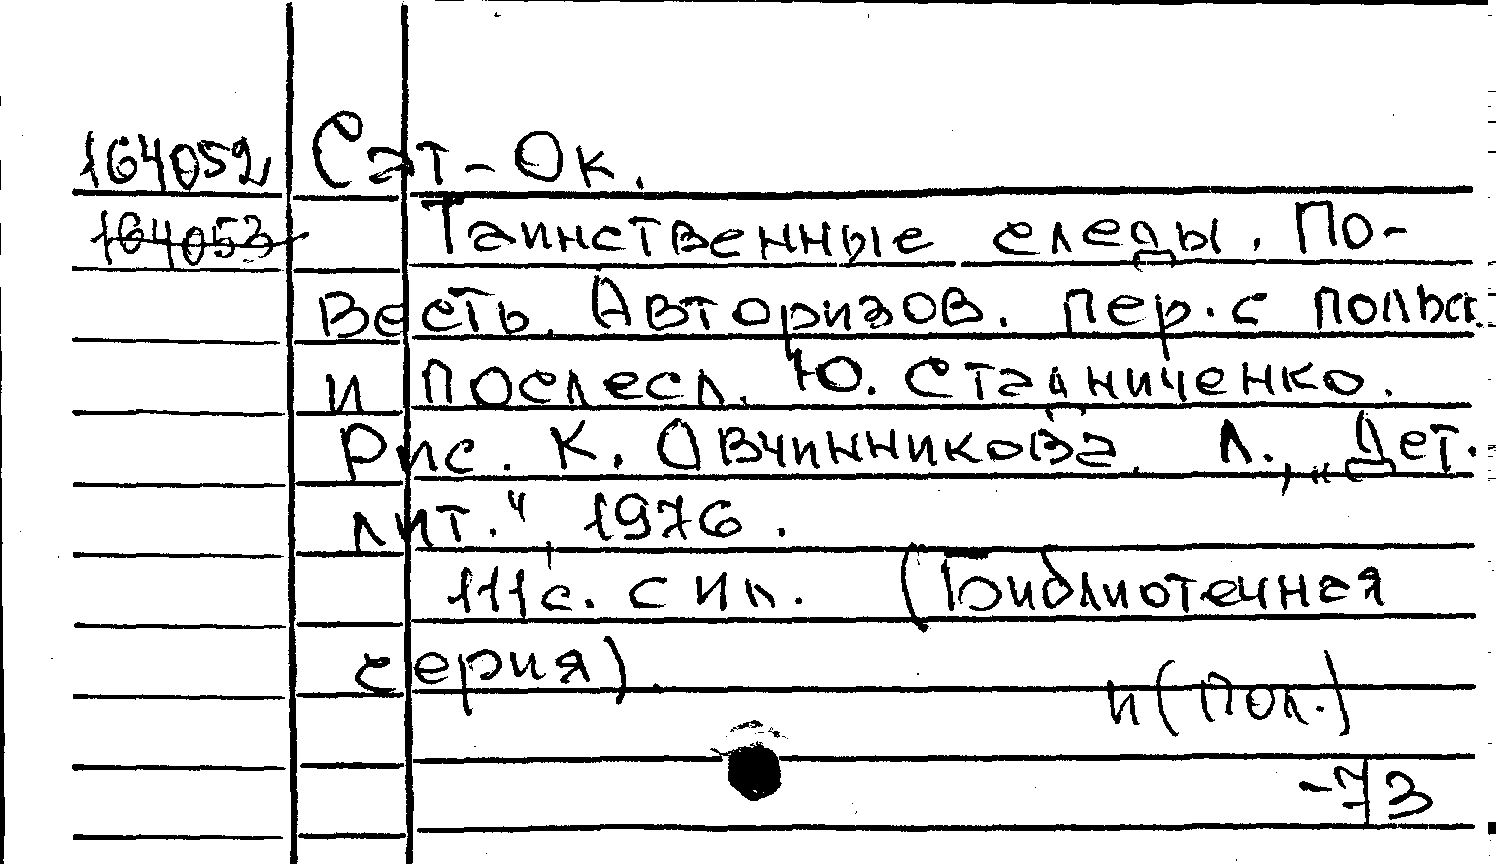 164052 Сат-Ок.
164053 Таинственные следы. По-
весть. Авторизов. пер. с польск.
и послесл. Ю. Стадниченко.
Рис. К. Овчинникова. Л., „Дет.
лит.“, 1976.
111с. с ил. (Библиотечная
серия).
И(Пол.)
-73